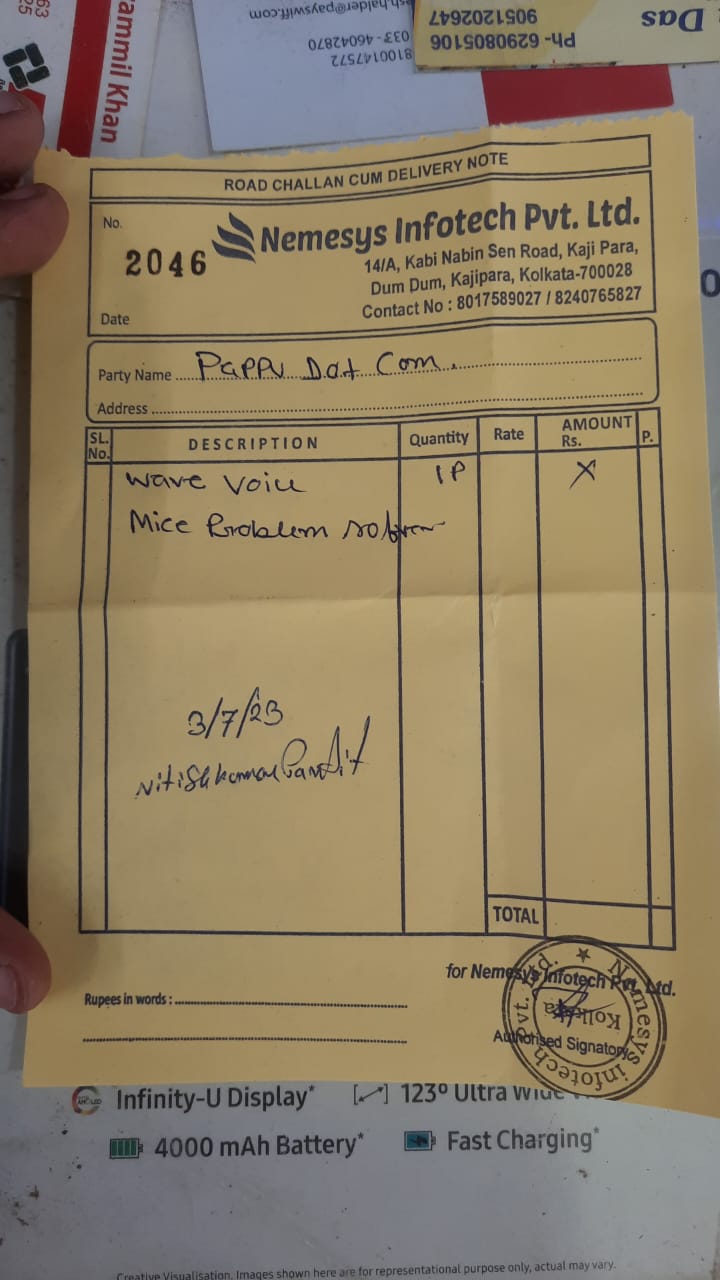 ammil Khan
sh.halder@payswiff.com
033- 46042870
8100147572
Das
Ph- 6290805106
9051202647
ROAD CHALLAN CUM DELIVERY NOTE
No.
2046
Nemesys Infotech Pvt. Ltd.
14/A, Kabi Nabin Sen Road, Kaji Para,
Dum Dum, Kajipara, Kolkata-700028
Contact No : 8017589027 / 8240765827
Date
Party Name Pappu Dot Com.
Address
SL. No. DESCRIPTION Quantity Rate AMOUNT Rs. P.
Wave Voice 1P X
Mice Problem
3/7/23
Nitish kumar Pandit
TOTAL
for Nemesys Infotech Pvt. Ltd.
Rupees in words :
Authorised Signatory
Nemesys Infotech Pvt. Ltd.
Kolkata
Infinity-U Display* 123° Ultra Wide
4000 mAh Battery* Fast Charging*
Creative Visualisation. Images shown here are for representational purpose only, actual may vary.